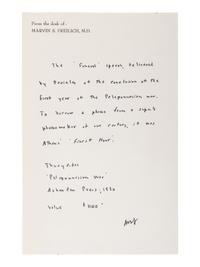 From the desk of -
MARVIN S. FREILICH, M.D.
The 'Funeral' speech, delivered
by Pericles at the conclusion of the
first year of the Peloponnesian war.
To borrow a phrase from a
phrasemaker of our century, it was
Athens' 'Finest Hour'.
Thucydides
'Peloponnesian War'
Ashendene Press, 1930
Value